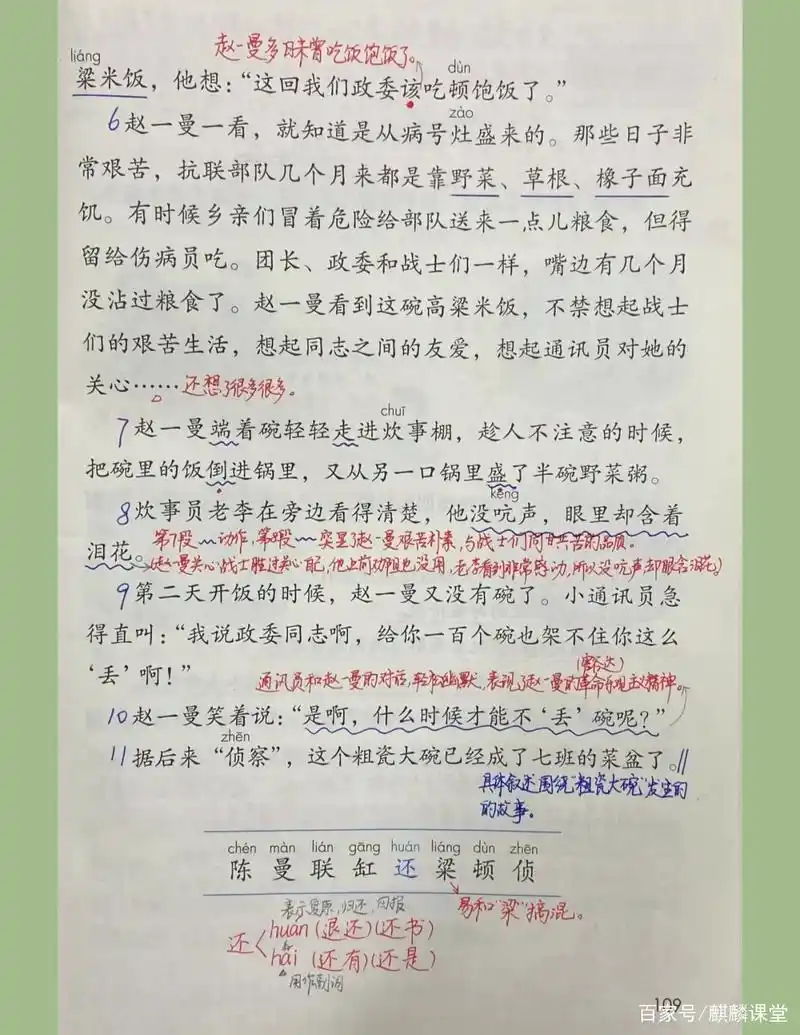 赵一曼多日未曾吃饭饱饭了。
liáng
dùn
粱米饭，他想：“这回我们政委该吃顿饱饭了。”
zào
6赵一曼一看，就知道是从病号灶盛来的。那些日子非
常艰苦，抗联部队几个月来都是靠野菜、草根、橡子面充
饥。有时候乡亲们冒着危险给部队送来一点儿粮食，但得
留给伤病员吃。团长、政委和战士们一样，嘴边有几个月
没沾过粮食了。赵一曼看到这碗高粱米饭，不禁想起战士
们的艰苦生活，想起同志之间的友爱，想起通讯员对她的
关心……还想了很多很多。
chuī
7赵一曼端着碗轻轻走进炊事棚，趁人不注意的时候，
把碗里的饭倒进锅里，又从另一口锅里盛了半碗野菜粥。
kēng
8炊事员老李在旁边看得清楚，他没吭声，眼里却含着
泪花。
第7段 动作，第8段 突显了赵一曼艰苦朴素，与战士们同甘共苦的品质。
(赵一曼关心战士胜过关心自己，他上前劝阻也没用，老李看到非常感动，所以没吭声却眼含泪花)
9第二天开饭的时候，赵一曼又没有碗了。小通讯员急
得直叫：“我说政委同志啊，给你一百个碗也架不住你这么
‘丢’啊！”
通讯员和赵一曼的对话，轻松幽默，表现了赵一曼的革命乐观主义精神。
10赵一曼笑着说：“是啊，什么时候才能不‘丢’碗呢？”
zhēn
11据后来“侦察”，这个粗瓷大碗已经成了七班的菜盆了。
具体叙述围绕“粗瓷大碗”发生的
的故事。
chén màn lián gāng huán liáng dùn zhēn
陈 曼 联 缸 还 粱 顿 侦
表示复原，归还，回报
易和“梁”搞混。
还
huán (退还)(还书)
hái (还有)(还是)
用作副词
109
百家号/麒麟课堂